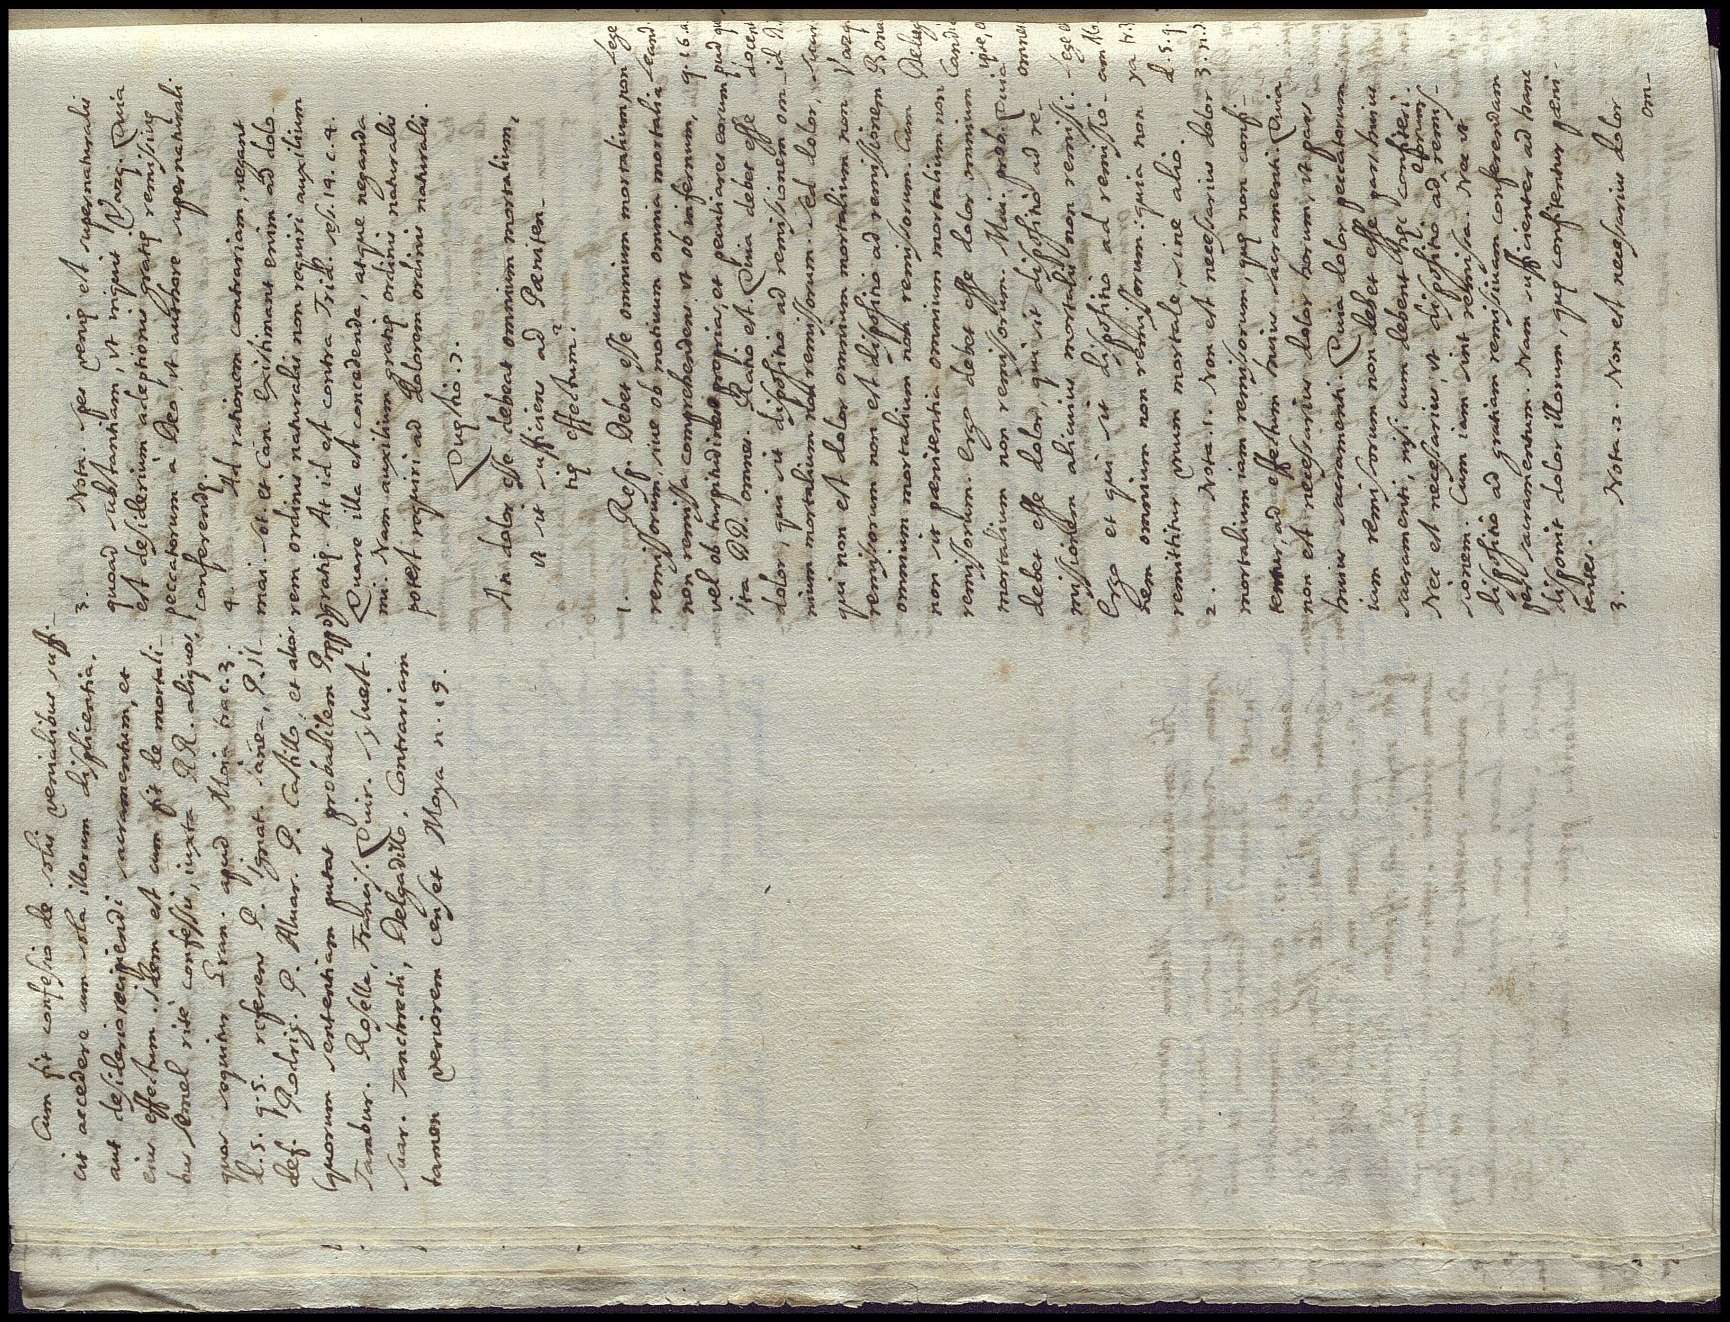 Cum fit confessio de solis venialibus suffi-
cit accedere cum sola illorum displicentia,
aut desiderio recipiendi sacramentum, et
eius effectum. idem est cum fit de mortali-
bus semel ritè confessis, iuxta RR. aliquos,
quos sequitur Gran. apud Moia trac. 3.
d. 5. q. 5. referens P. Ignat.
def. P. Rodrig. P. Aluar. P. Castillo, et alios
(quorum sententiam putat probabilem
Tambur. Rosella, Francis. Quir. Syluest.
Suar. Tancredi, Delgadillo. Contrariam
tamen veriorem censet Moya n. 19.
3. Nota. spes veniae est supernaturalis
quoad substantiam, vt inquit Vazq. Quia
est desiderium adeptionis gratiae remissiuae
peccatorum a Deo, vt authore supernaturali
conferendae.
4. Ad rationem contrariam, negant
mai. Sot. et Can. existimant enim ad dolo-
rem ordinis naturalis non requiri auxilium
gratiae. At id est contra Trid. sess. 14. c. 4.
Quare illa est concedenda, atque neganda
mi. Nam auxilium gratiae ordinis naturalis
potest requiri ad dolorem ordinis naturalis.
Quaestio. 3.
An dolor esse debeat omnium mortalium,
vt sit sufficiens ad Poeniten-
tiae effectum?
1. Resp. Debet esse omnium mortalium, non
remissorum, siue ob motiuum omnia mortalia
non remissa comprehendens vt ob infernum,
vel ob turpitudines proprias, et peculiares eorum
ita DD. omnes. Ratio est. Quia debet esse
dolor, qui sit dispositio ad remissionem om-
nium mortalium non remissorum. sed dolor,
qui non est dolor omnium mortalium non
remissorum non est dispositio ad remissionem
omnium mortalium non remissorum. Cum
non sit poenitentia omnium mortalium non
remissorum. ergo debet esse dolor omnium
mortalium non remissorum. Mai. prob. Quia
debet esse dolor, qui sit dispositio ad re-
missionem alicuius mortalis non remissi.
Ergo et qui sit dispositio ad remissio-
nem omnium non remissorum: quia non
remittitur vnum mortale, sine alio.
2. Nota. 1. Non est necessarius dolor
mortalium iam remissorum, quae non confi-
tentur, ad effectum huius sacramenti. Quia
non est necessarius dolor horum, vt pars
huius sacramenti. Quia dolor peccatorum
iam remissorum non debet esse pars huius
sacramenti, nisi cum debent confiteri.
Nec est necessarius, vt dispositio ad eorum remis-
sionem. Cum iam sint remissa. Nec vt
dispositio ad gratiam remissiuam conferendam
per sacramentum. Nam sufficienter ad hanc
disponit dolor illorum, quae confitentur poeni-
tentes.
3. Nota. 2. Non est necessarius dolor
om-